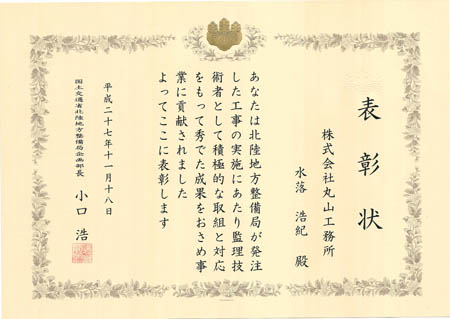 表彰状
株式会社丸山工務所
水落 浩紀 殿
あなたは北陸地方整備局が発注
した工事の実施にあたり監理技
術者として積極的な取組と対応
をもって秀でた成果をおさめ事
業に貢献されました
よってここに表彰します
平成二十七年十一月十八日
国土交通省北陸地方整備局企画部長
小口 浩